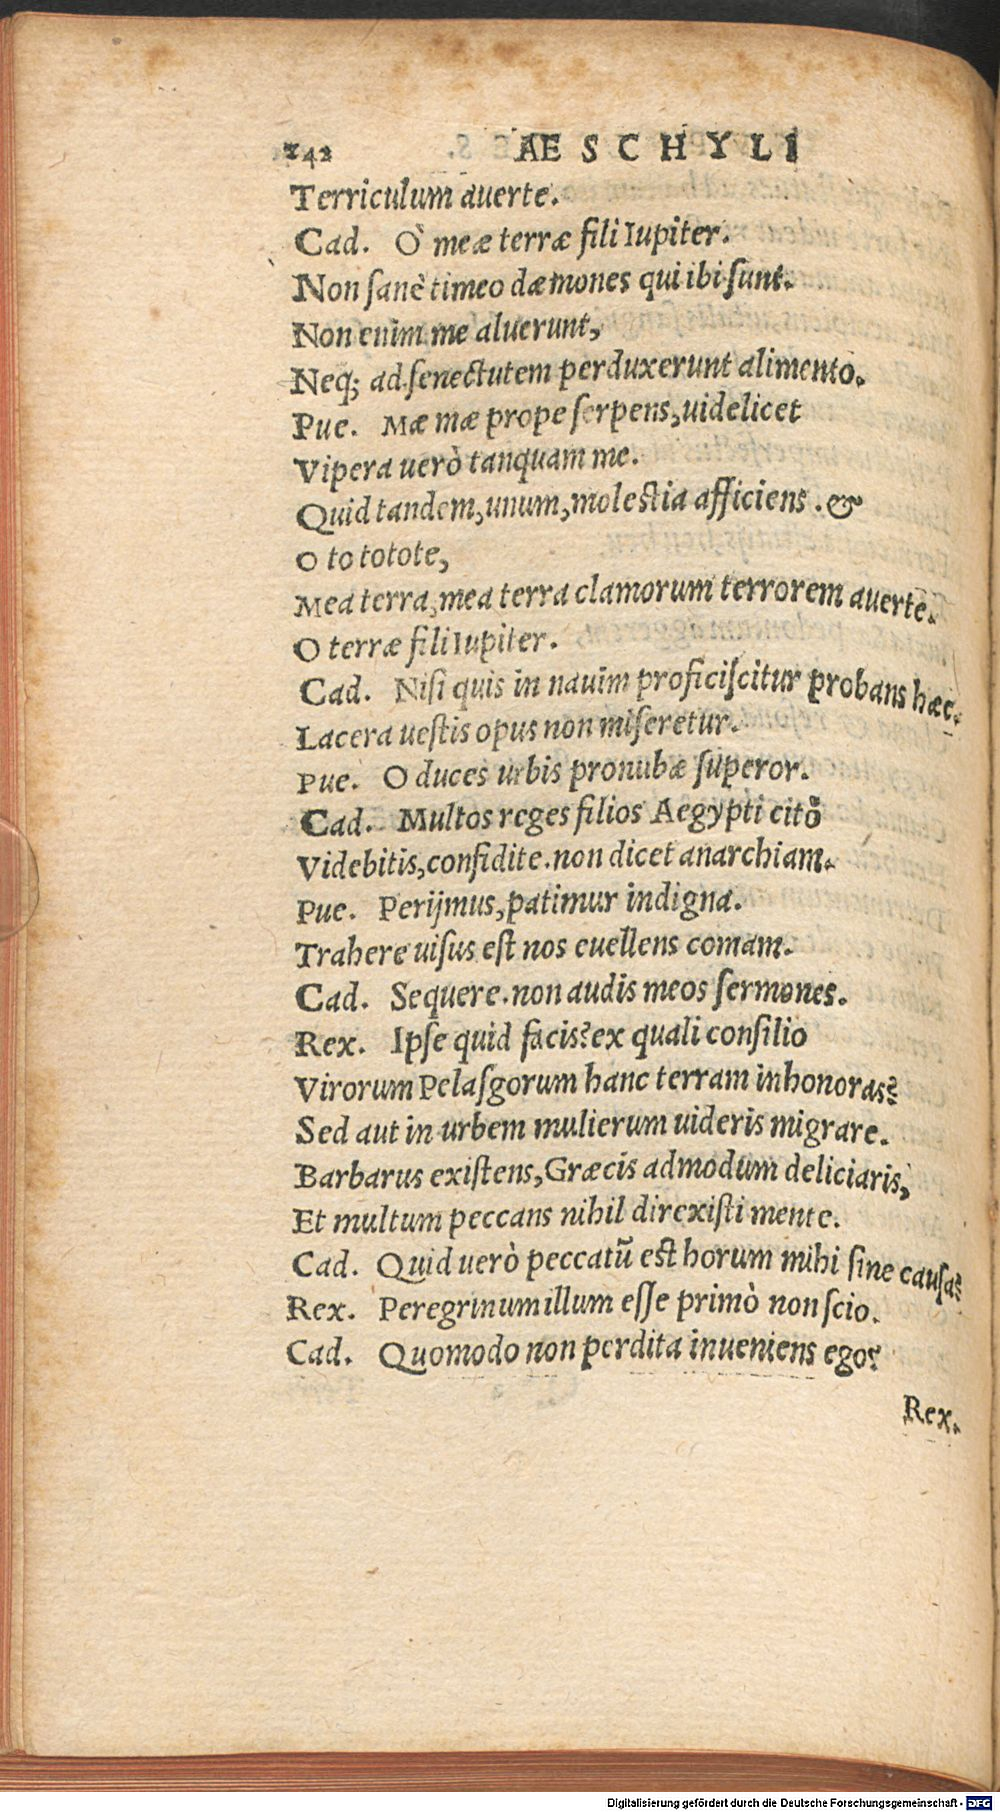 242 AESCHYLI
Terriculum auerte.
Cad. Ò meæ terræ fili Iupiter.
Non sanè timeo dæmones qui ibi sunt.
Non enim me aluerunt,
Neq; ad senectutem perduxerunt alimento.
Pue. Mæ mæ prope serpens, uidelicet
Vipera uerò tanquam me.
Quid tandem, unum, molestia afficiens. &
O to totote,
Mea terra, mea terra clamorum terrorem auerte.
O terræ fili Iupiter.
Cad. Nisi quis in nauim proficiscitur probans hæc.
Lacera uestis opus non miseretur.
Pue. O duces urbis pronubæ superor.
Cad. Multos reges filios Aegypti citò
Videbitis, confidite. non dicet anarchiam.
Pue. Perijmus, patimur indigna.
Trahere uisus est nos euellens comam.
Cad. Sequere. non audis meos sermones.
Rex. Ipse quid facis? ex quali consilio
Virorum Pelasgorum hanc terram inhonoras?
Sed aut in urbem mulierum uideris migrare.
Barbarus existens, Græcis admodum deliciaris,
Et multum peccans nihil direxisti mente.
Cad. Quid uerò peccatū est horum mihi sine causa?
Rex. Peregrinum illum esse primò non scio.
Cad. Quomodo non perdita inueniens ego?
Rex.
Digitalisierung gefördert durch die Deutsche Forschungsgemeinschaft - DFG